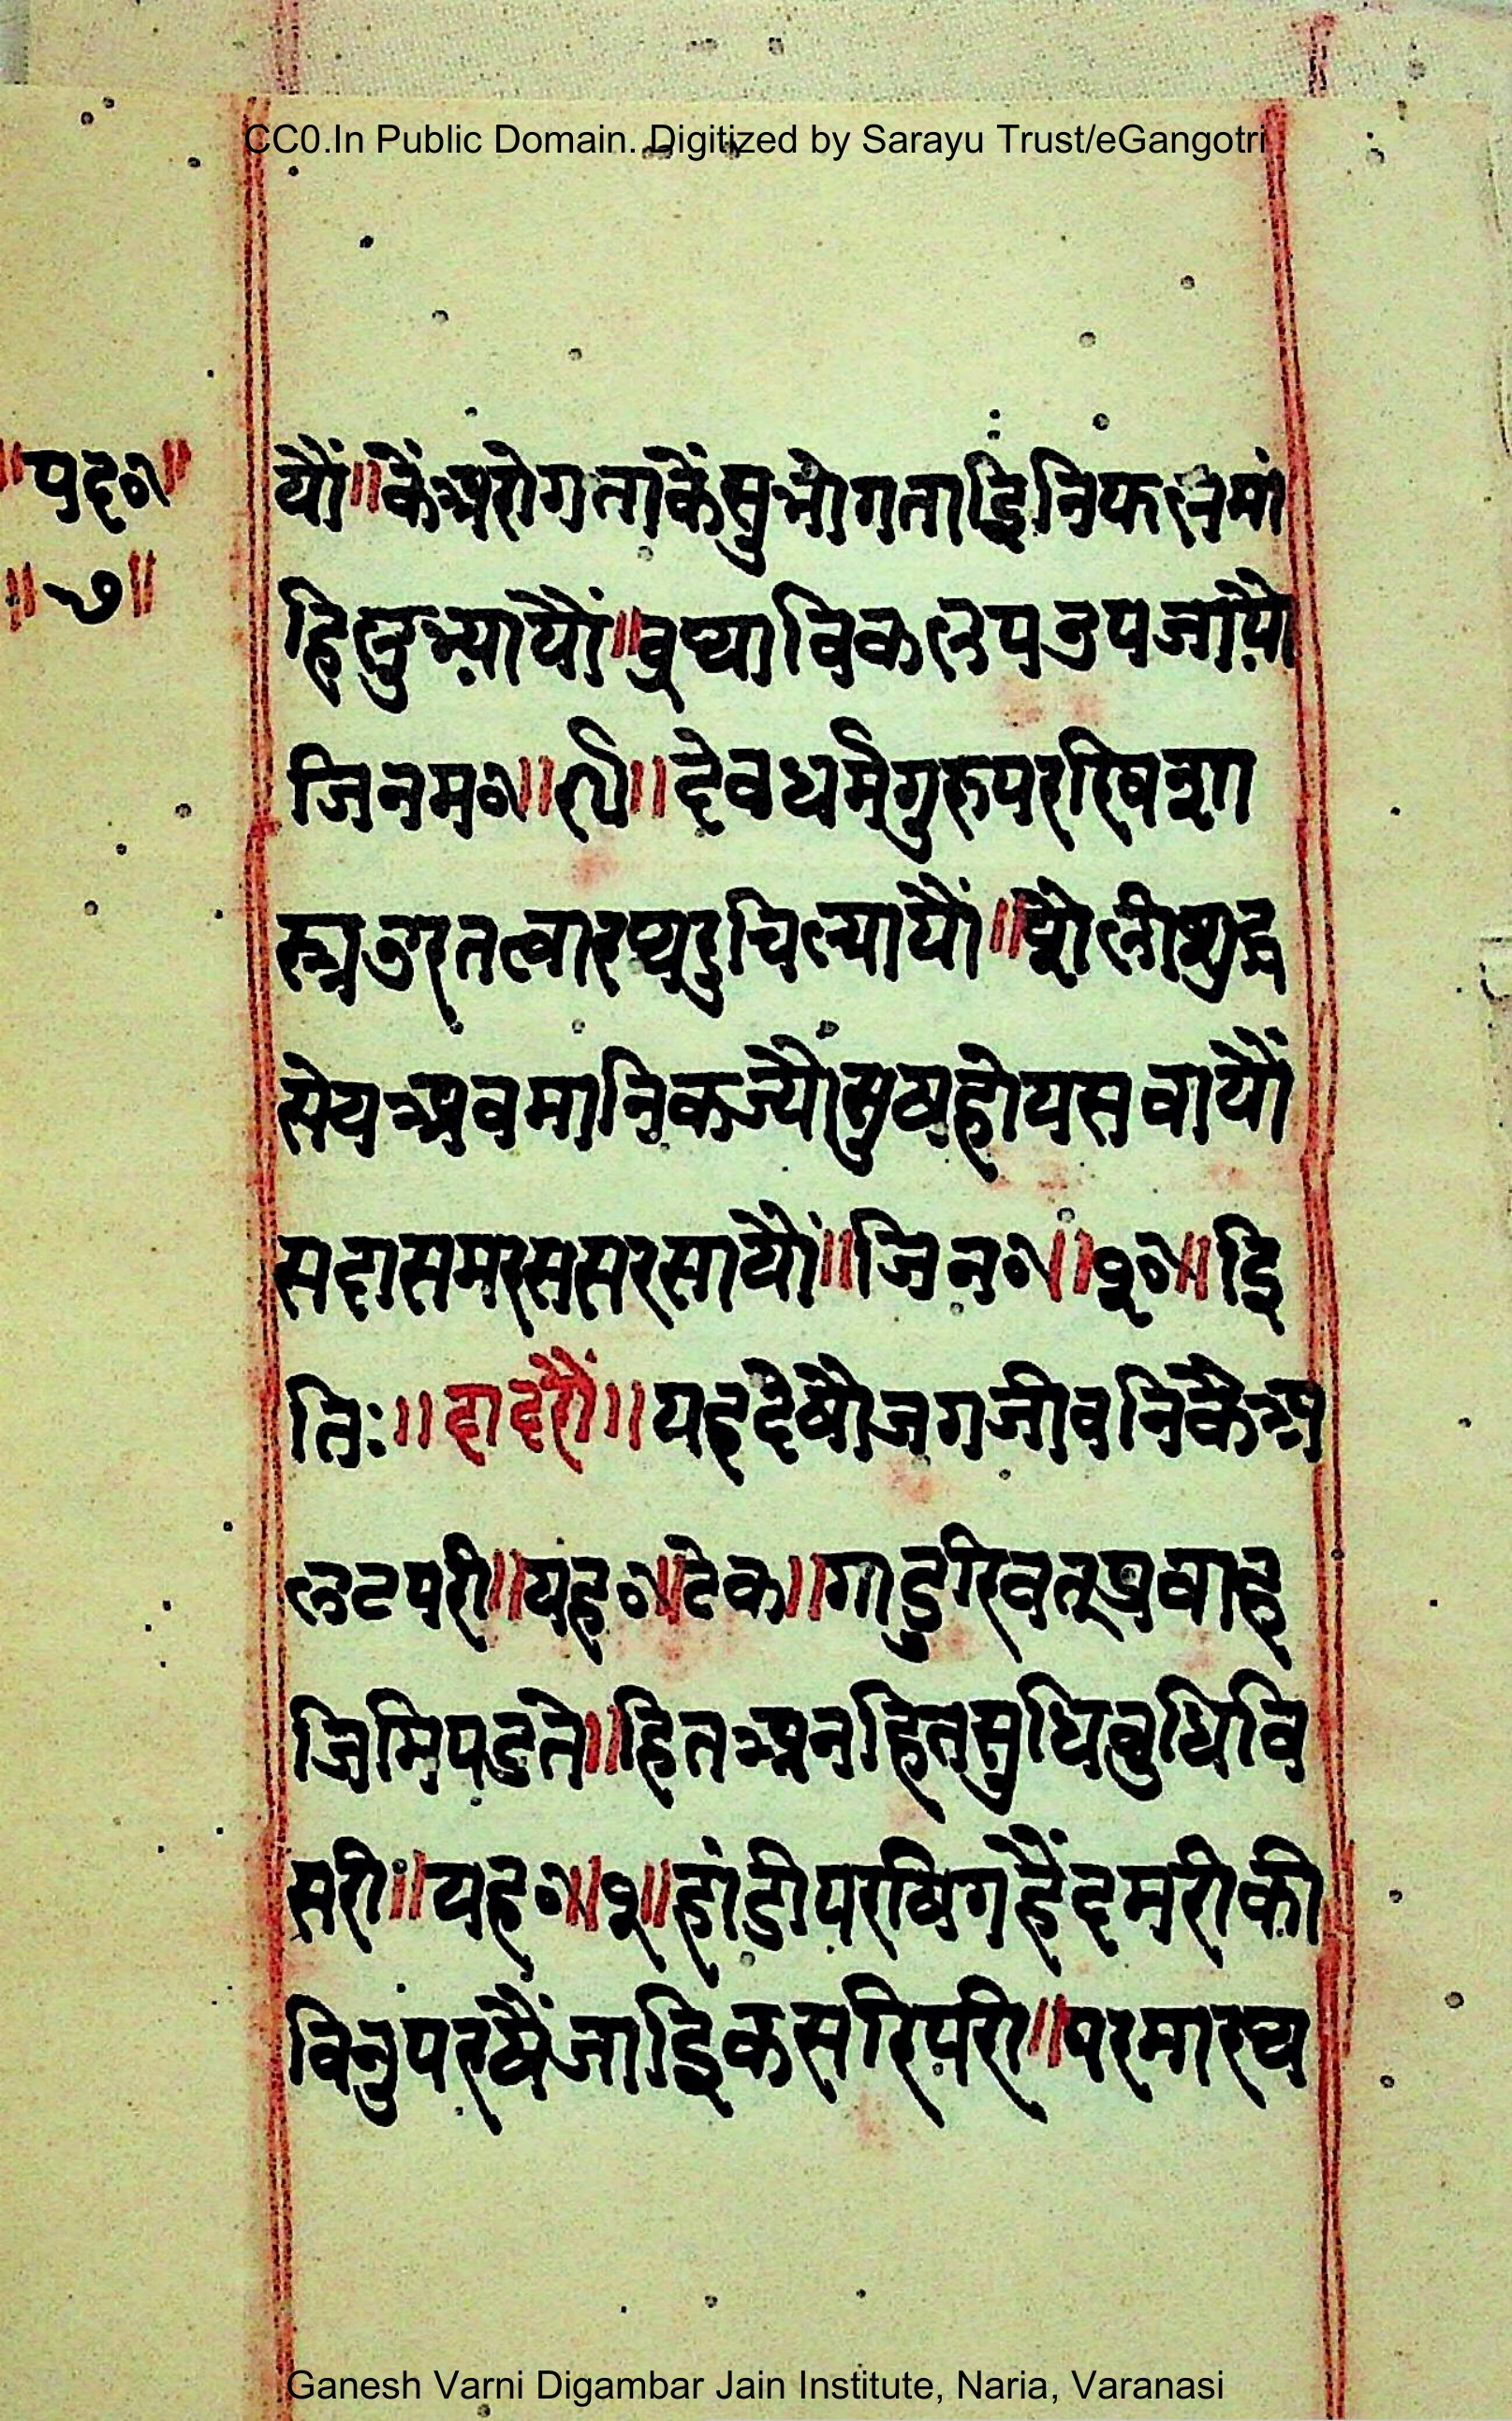 CC0.In Public Domain. Digitized by Sarayu Trust/eGangotri
॥पद॰॥
॥७॥
यौं॥कैंअरोगताकैंसुभोगताइनिफलमां
हिलुभ्यायौं॥वृथाविकलपउपजायौ
जिनम॰॥४॥देवधर्मगुरुपरषि
उरतत्वारथरुचिल्यायौं॥
सेयअवमानिकज्यौंसुषहोयसवायौं
सदासमरससरसायौं॥जिन॰॥१॰॥इ
तिः॥दादरौं॥यहदेषौजगजीवनिकैअ
लटपरी॥यह॰॥टेक॥गाडुरिवतप्रवाह
जिमिपडते॥हितअनहितसुधिबुधिवि
सरी॥यह॰॥१॥हांडीपरषिगहैंदमरीकी
विनुपरषैंजाइकसरिपरी॥परमारथ
Ganesh Varni Digambar Jain Institute, Naria, Varanasi